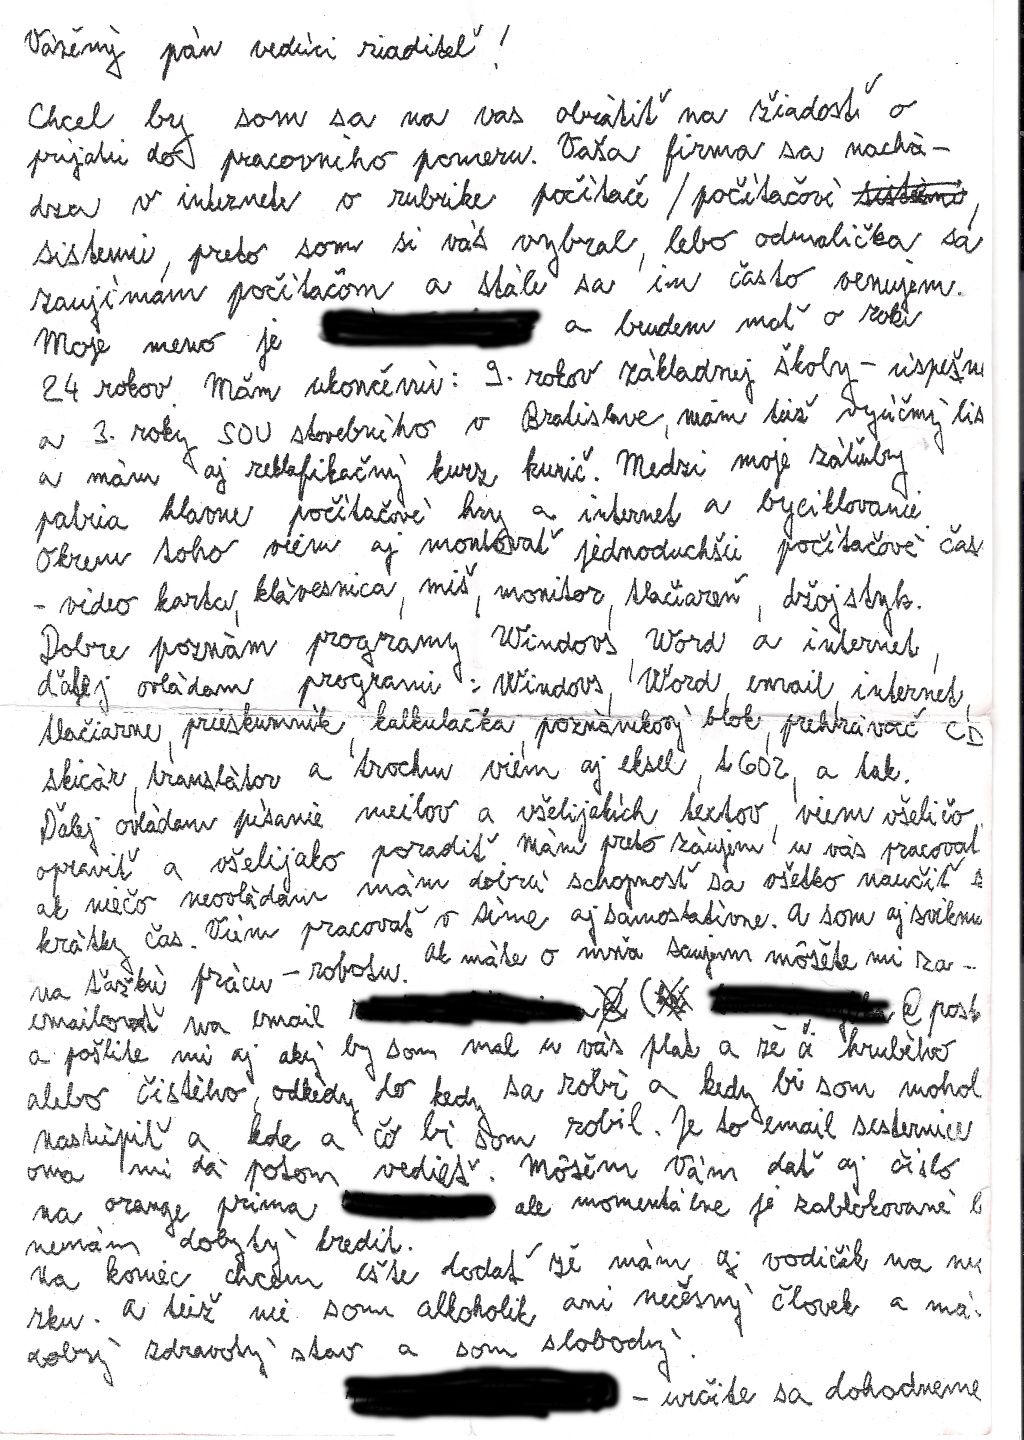 Vážěný pán vedúci riaditeľ!
Chcel by som sa na vas obrátiť na žiadosť o
príjatii do pracovního pomeru. Vaša firma sa nachá-
dza v internete v rubrike počítače / počítačové
sistemi, preto som si vás vybral, lebo odmalička sa
zaujímám počítačom a stále sa im často venujem.
Moje meno je a budem mať o roki
24 rokov. Mám ukončéniu: 9. rokov základnej školy - úspešne
a 3. roky SOU stovebního v Bratislave, mám tiéž výúčný lis
a mám aj reklafikačný kurz kurič. Medzi moje záľuby
patria hlavne počítačové hry a internet a byciklovanie.
Okrem toho viém aj montovať jednoduchšii počítačové čas
- video karta, klávesnica, miš, monitor, tlačiareň, džojstyk.
Dobre poznám programy Windovs Word a internet,
ďálej ovládam programi: Windovs, Word, email, internet,
tlačiarne, prieskumník, kalkulačka, poznámkový blok, prehrávač CD
skicár, translátor a trochu viém aj eksel, t602, a tak.
Ďálej ovládam písanie meilov a všelijakích textov, viem všeličo
opraviť a všelijako poradiť mám preto záujem u vás pracovať
ak niéčo neovládam mám dobrú schopnosť sa všetko naučiť s
krátky čas. Viém pracovať v time aj samostatívne. A som aj sviknu
na ťažkú prácu - robotu. Ak máte o mňa saujem môšěte mi za-
emailovať na email ( @post
a pošlite mi aj aký by som mal u vás plat a zě či hrubého
alebo čistého, odkédy do kedy sa robí a kedy bi som mohol
nastúpiť a kde a čo bi som robil. Je to email sesternice
oma mi dá potom vedieť. Môšěm Vám dať aj číslo
na orange prima ale momentálne jé zablokované b
nemám dobytý kredit.
Na koniéc chcem ešte dodať zě mám aj vodičák na nu
rku. A tiéž nié som alkoholik ani nečěsný človek a má
dobrý zdravotý stav a som slobodný.
- určite sa dohodneme